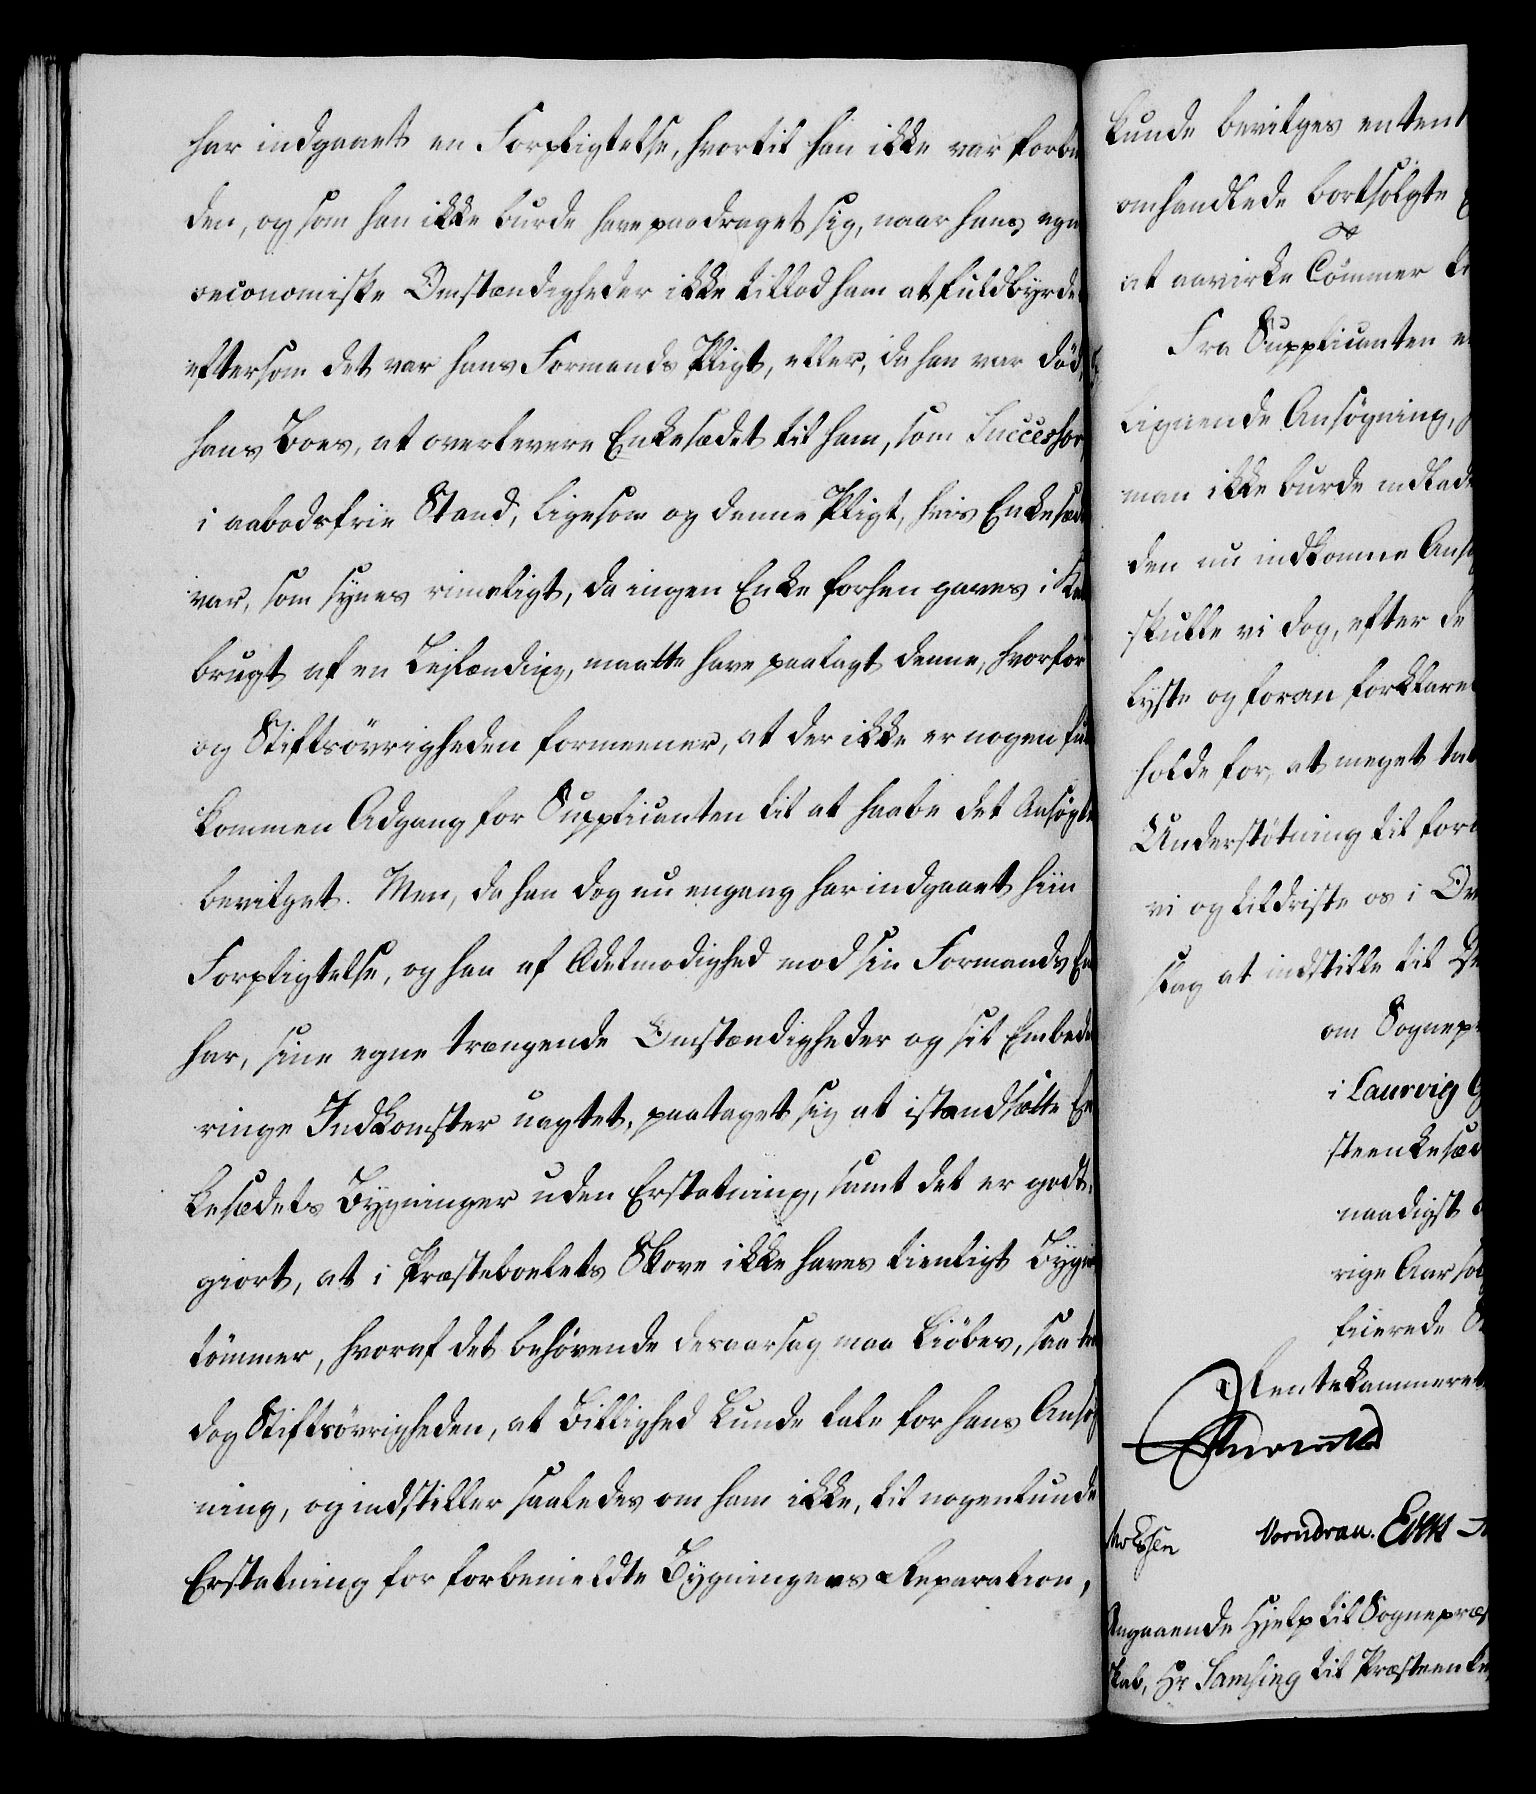 har indgaaet en Forpligtelse, hvortil han ikke var forbu
den, og som han ikke burde have paadraget sig, naar hans egne
oeconomiske Omstændigheder ikke tillod ham at fuldbyrde
eftersom det var hans Formands Pligt, eller, da han var död,
hans Boes, at overlevere Enkesædet til ham, som Successor,
i aabodsfrie Stand, ligesom og denne Pligt, hvis Enkesæd
var, som synes rimeligt, da ingen Enke forhen gaves i
brugt af en Leilænding, maatte have paalagt denne, hvorfor
og Stiftsövrigheden formeener, at der ikke er nogen ful
kommen Adgang for Supplicanten til at haabe det Ansögte
bevilget. Men, da han dog nu engang har indgaaet hiin
Forpligtelse, og han af Ædelmodighed mod sin Formands En
har, sine egne trængende Omstændigheder og sit Embeds
ringe Indkomster uagtet, paataget sig at istandsætte En
kesædets Bygninger uden Erstatning, samt det er godt-
giort, at i Præsteboelets Skove ikke haves tienligt Bygn
tömmer, hvoraf det behövende desaarsag maa kiöbes, saa
dog Stiftsövrigheden, at Billighed kunde tale for hans Ansög
ning, og indstiller saaledes om ham ikke, til nogenlunde
Erstatning for forbemeldte Bygningers Reparation,
kunde bevilges enten
omhandlede bortsolgte
at aavirke Tömmer
Fra Supplicanten
lignende Ansögning,
man ikke burde indlade
den nu indkomne Ansög
skulle vi dog, efter de
lyste og foran forklare
holde for, at meget tal
Understötning til for
vi og tildriste os i
slag at indstille til
om Sognepr
i Laurvig G
steenkesæd
naadigst
rige Aar
feierede
Rentekammeret
Vorndran.
Angaaende Hjelp til Sognepræs
kab, Hr Samsing til Præsteenke